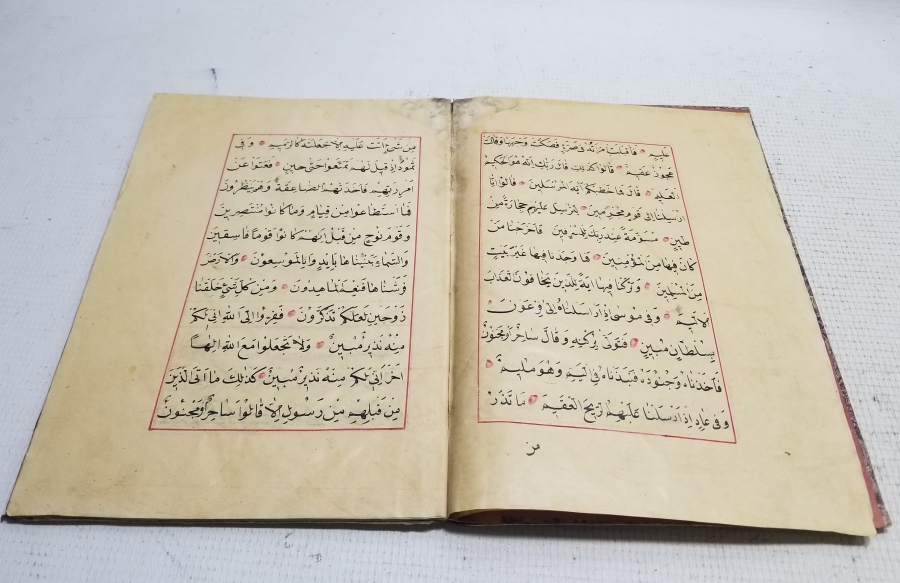 عَلِيمٍ فَاَقْبَلَتِ امْرَاَتُهُ فِي صَرَّةٍ فَصَكَّتْ وَجْهَهَا وَقَالَتْ
عَجُوزٌ عَقِيمٌ قَالُوا كَذٰلِكَ قَالَ رَبُّكِ اِنَّهُ هُوَ الْحَكِيمُ
الْعَلِيمُ قَالَ فَمَا خَطْبُكُمْ اَيُّهَا الْمُرْسَلُونَ قَالُوا اِنَّا
اُرْسِلْنَا اِلٰى قَوْمٍ مُجْرِمِينَ لِنُرْسِلَ عَلَيْهِمْ حِجَارَةً مِنْ
طِينٍ مُسَوَّمَةً عِنْدَ رَبِّكَ لِلْمُسْرِفِينَ فَاَخْرَجْنَا مَنْ
كَانَ فِيهَا مِنَ الْمُؤْمِنِينَ فَمَا وَجَدْنَا فِيهَا غَيْرَ بَيْتٍ
مِنَ الْمُسْلِمِينَ وَتَرَكْنَا فِيهَا اٰيَةً لِلَّذِينَ يَخَافُونَ الْعَذَابَ
الْاَلِيمَ وَفِي مُوسٰى اِذْ اَرْسَلْنَاهُ اِلٰى فِرْعَوْنَ
بِسُلْطَانٍ مُبِينٍ فَتَوَلّٰى بِرُكْنِهِ وَقَالَ سَاحِرٌ اَوْ مَجْنُونٌ
فَاَخَذْنَاهُ وَجُنُودَهُ فَنَبَذْنَاهُمْ فِي الْيَمِّ وَهُوَ مُلِيمٌ
وَفِي عَادٍ اِذْ اَرْسَلْنَا عَلَيْهِمُ الرِّيحَ الْعَقِيمَ مَا تَذَرُ
من
مِنْ شَيْءٍ اَتَتْ عَلَيْهِ اِلَّا جَعَلَتْهُ كَالرَّمِيمِ وَفِي
ثَمُودَ اِذْ قِيلَ لَهُمْ تَمَتَّعُوا حَتّٰى حِينٍ فَعَتَوْا عَنْ
اَمْرِ رَبِّهِمْ فَاَخَذَتْهُمُ الصَّاعِقَةُ وَهُمْ يَنْظُرُونَ
فَمَا اسْتَطَاعُوا مِنْ قِيَامٍ وَمَا كَانُوا مُنْتَصِرِينَ
وَقَوْمَ نُوحٍ مِنْ قَبْلُ اِنَّهُمْ كَانُوا قَوْمًا فَاسِقِينَ
وَالسَّمَاءَ بَنَيْنَاهَا بِاَيْيدٍ وَاِنَّا لَمُوسِعُونَ وَالْاَرْضَ
فَرَشْنَاهَا فَنِعْمَ الْمَاهِدُونَ وَمِنْ كُلِّ شَيْءٍ خَلَقْنَا
زَوْجَيْنِ لَعَلَّكُمْ تَذَكَّرُونَ فَفِرُّوا اِلَى اللهِ اِنِّي لَكُمْ
مِنْهُ نَذِيرٌ مُبِينٌ وَلَا تَجْعَلُوا مَعَ اللهِ اِلٰهًا
اٰخَرَ اِنِّي لَكُمْ مِنْهُ نَذِيرٌ مُبِينٌ كَذٰلِكَ مَا اَتَى الَّذِينَ
مِنْ قَبْلِهِمْ مِنْ رَسُولٍ اِلَّا قَالُوا سَاحِرٌ اَوْ مَجْنُونٌ